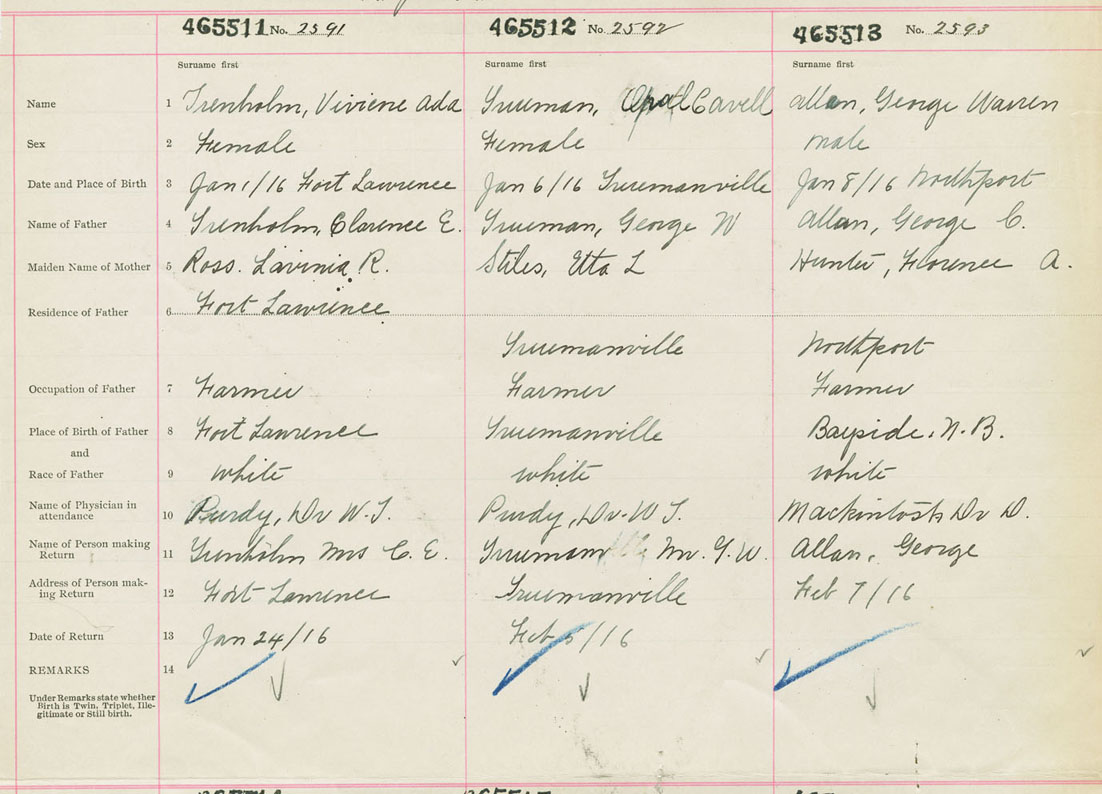 465511 No. 2591 465512 No. 2592 465513 No. 2593
Surname first Surname first Surname first
Name 1 Trenholm, Viviene Ada Trueman, Opal Cavell Allan, George Warren
Sex 2 Female Female Male
Date and Place of Birth 3 Jan 1/16 Fort Lawrence Jan 6/16 Truemanville Jan 8/16 Northport
Name of Father 4 Trenholm, Clarence E. Trueman, George W Allan, George C.
Maiden Name of Mother 5 Ross. Lavinia R. Stiles, Etta L Hunter, Florence A.
Residence of Father 6 Fort Lawrence
Truemanville Northport
Occupation of Father 7 Farmer Farmer Farmer
Place of Birth of Father 8 Fort Lawrence Truemanville Bayside. N.B.
and
Race of Father 9 white white white
Name of Physician in
attendance 10 Purdy, Dr W.T. Purdy, Dr. W T. Mackintosh Dr D.
Name of Person making
Return 11 Trenholm Mrs C. E. Trueman Mr. G. W. Allan, George
Address of Person mak-
ing Return 12 Fort Lawrence Truemanville Feb 7/16
Date of Return 13 Jan 24/16 Feb 5/16
REMARKS 14
Under Remarks state whether
Birth is Twin, Triplet, Ille-
gitimate or Still birth.